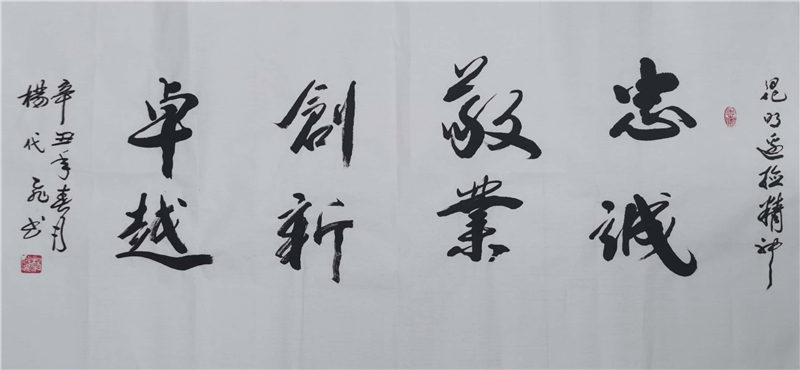 昆明边检精神
忠诚
敬業
創新
卓越
辛丑年春月
楊代飛书